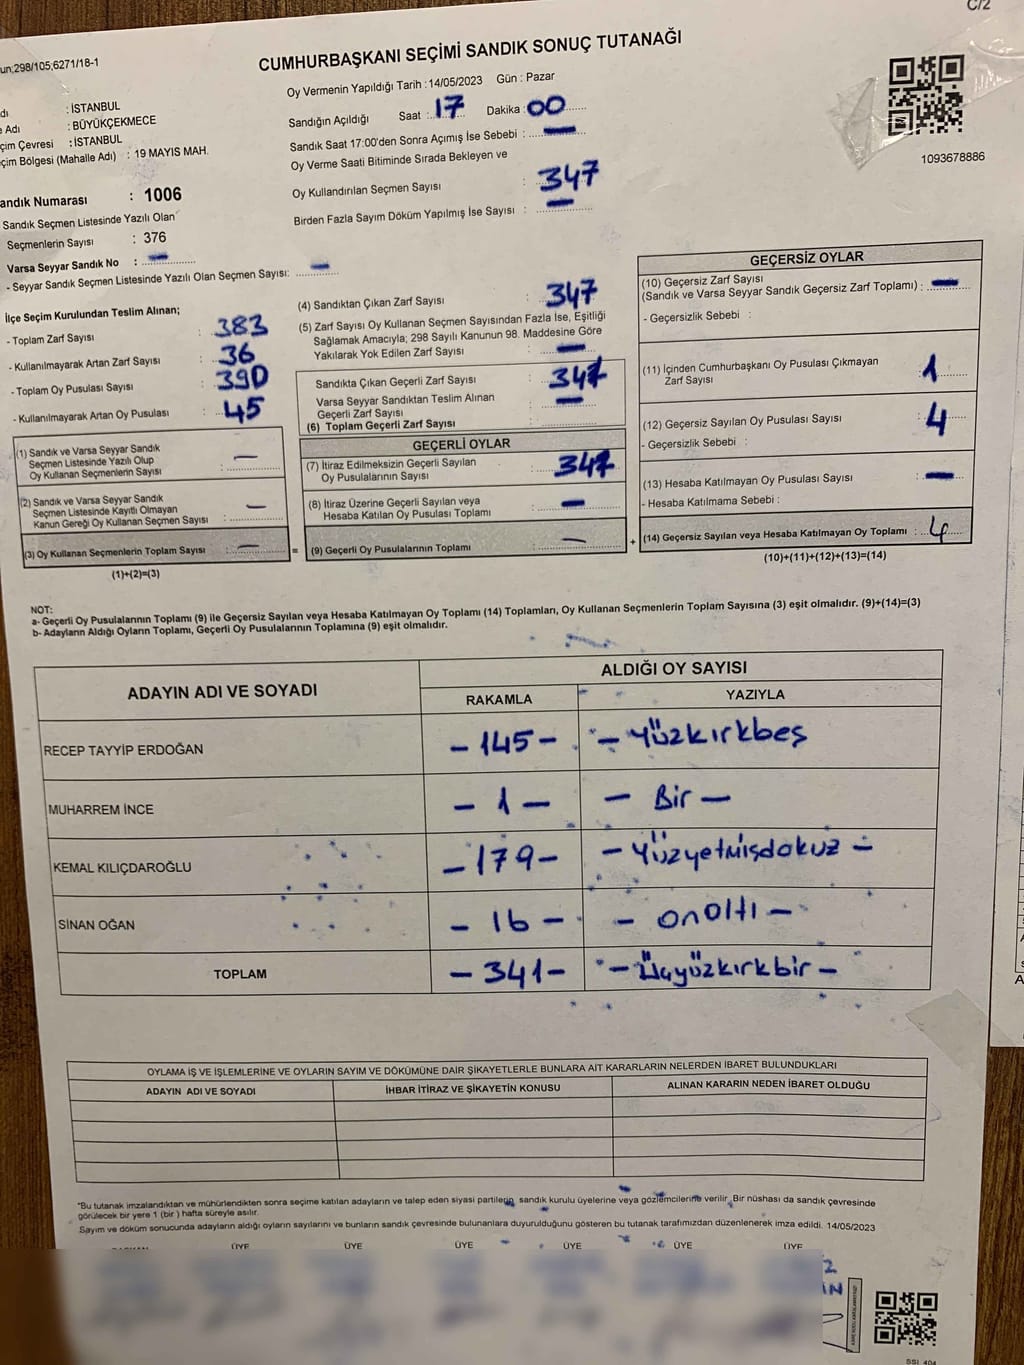 C/2
un;298/105;6271/18-1
CUMHURBAŞKANI SEÇİMİ SANDIK SONUÇ TUTANAĞI
dı : İSTANBUL
e Adı : BÜYÜKÇEKMECE
çim Çevresi : İSTANBUL
çim Bölgesi (Mahalle Adı) : 19 MAYIS MAH.
andık Numarası : 1006
Sandık Seçmen Listesinde Yazılı Olan
Seçmenlerin Sayısı : 376
Varsa Seyyar Sandık No : —
- Seyyar Sandık Seçmen Listesinde Yazılı Olan Seçmen Sayısı: —
Oy Vermenin Yapıldığı Tarih : 14/05/2023 Gün : Pazar
Sandığın Açıldığı Saat : 17 Dakika : 00
Sandık Saat 17:00'den Sonra Açımış İse Sebebi : —
Oy Verme Saati Bitiminde Sırada Bekleyen ve
Oy Kullandırılan Seçmen Sayısı : 347
Birden Fazla Sayım Döküm Yapılmış İse Sayısı : —
1093678886
İlçe Seçim Kurulundan Teslim Alınan;
- Toplam Zarf Sayısı : 383
- Kullanılmayarak Artan Zarf Sayısı : 36
- Toplam Oy Pusulası Sayısı : 390
- Kullanılmayarak Artan Oy Pusulası : 45
(1) Sandık ve Varsa Seyyar Sandık
Seçmen Listesinde Yazılı Olup
Oy Kullanan Seçmenlerin Sayısı : —
(2) Sandık ve Varsa Seyyar Sandık
Seçmen Listesinde Kayıtlı Olmayan
Kanun Gereği Oy Kullanan Seçmen Sayısı : —
(3) Oy Kullanan Seçmenlerin Toplam Sayısı : —
(1)+(2)=(3)
=
(4) Sandıktan Çıkan Zarf Sayısı : 347
(5) Zarf Sayısı Oy Kullanan Seçmen Sayısından Fazla İse, Eşitliği
Sağlamak Amacıyla; 298 Sayılı Kanunun 98. Maddesine Göre
Yakılarak Yok Edilen Zarf Sayısı : —
Sandıkta Çıkan Geçerli Zarf Sayısı : 347
Varsa Seyyar Sandıktan Teslim Alınan
Geçerli Zarf Sayısı : —
(6) Toplam Geçerli Zarf Sayısı
GEÇERLİ OYLAR
(7) İtiraz Edilmeksizin Geçerli Sayılan
Oy Pusulalarının Sayısı : 347
(8) İtiraz Üzerine Geçerli Sayılan veya
Hesaba Katılan Oy Pusulası Toplamı : —
(9) Geçerli Oy Pusulalarının Toplamı : —
+
GEÇERSİZ OYLAR
(10) Geçersiz Zarf Sayısı
(Sandık ve Varsa Seyyar Sandık Geçersiz Zarf Toplamı) : —
- Geçersizlik Sebebi :
(11) İçinden Cumhurbaşkanı Oy Pusulası Çıkmayan
Zarf Sayısı : 1
(12) Geçersiz Sayılan Oy Pusulası Sayısı : 4
- Geçersizlik Sebebi :
(13) Hesaba Katılmayan Oy Pusulası Sayısı : —
- Hesaba Katılmama Sebebi :
(14) Geçersiz Sayılan veya Hesaba Katılmayan Oy Toplamı : 4
(10)+(11)+(12)+(13)=(14)
NOT:
a- Geçerli Oy Pusulalarının Toplamı (9) ile Geçersiz Sayılan veya Hesaba Katılmayan Oy Toplamı (14) Toplamları, Oy Kullanan Seçmenlerin Toplam Sayısına (3) eşit olmalıdır. (9)+(14)=(3)
b- Adayların Aldığı Oyların Toplamı, Geçerli Oy Pusulalarının Toplamına (9) eşit olmalıdır.
ADAYIN ADI VE SOYADI
ALDIĞI OY SAYISI
RAKAMLA YAZIYLA
RECEP TAYYİP ERDOĞAN - 145 - - Yüzkırkbeş
MUHARREM İNCE - 1 - - Bir -
KEMAL KILIÇDAROĞLU - 179 - - Yüzyetmişdokuz -
SİNAN OĞAN - 16 - - onaltı -
TOPLAM - 341 - - Üçyüzkırkbir -
OYLAMA İŞ VE İŞLEMLERİNE VE OYLARIN SAYIM VE DÖKÜMÜNE DAİR ŞİKAYETLERLE BUNLARA AİT KARARLARIN NELERDEN İBARET BULUNDUKLARI
ADAYIN ADI VE SOYADI İHBAR İTİRAZ VE ŞİKAYETİN KONUSU ALINAN KARARIN NEDEN İBARET OLDUĞU
*Bu tutanak imzalandıktan ve mühürlendikten sonra seçime katılan adayların ve talep eden siyasi partilerin, sandık kurulu üyelerine veya gözlemcilerine verilir. Bir nüshası da sandık çevresinde
görülecek bir yere 1 (bir) hafta süreyle asılır.
Sayım ve döküm sonucunda adayların aldığı oyların sayılarını ve bunların sandık çevresinde bulunanlara duyurulduğunu gösteren bu tutanak tarafımızdan düzenlenerek imza edildi. 14/05/2023
ÜYE ÜYE ÜYE ÜYE ÜYE ÜYE